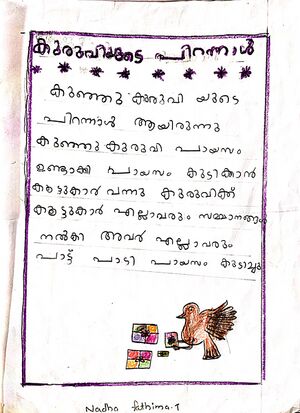 കുരുവിയുടെ പിറന്നാൾ
കുഞ്ഞു കുരുവി യുടെ
പിറന്നാൾ ആയിരുന്നു
കുഞ്ഞു കുരുവി പായസം
ഉണ്ടാക്കി പായസം കുടിക്കാൻ
കൂട്ടുകാർ വന്നു കുരുവിക്ക്
കൂട്ടുകാർ എല്ലാവരും സമ്മാനങ്ങൾ
നൽകി അവർ എല്ലാവരും
പാട്ട് പാടി പായസം കുടിച്ചു
Nadha fathima.T